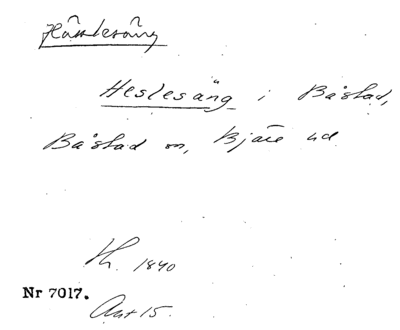 Hässlesäng
Heslesäng i Båstad,
Båstad sn, Bjäre hd
Lh. 1840
Nr 7017.
Akt 15.